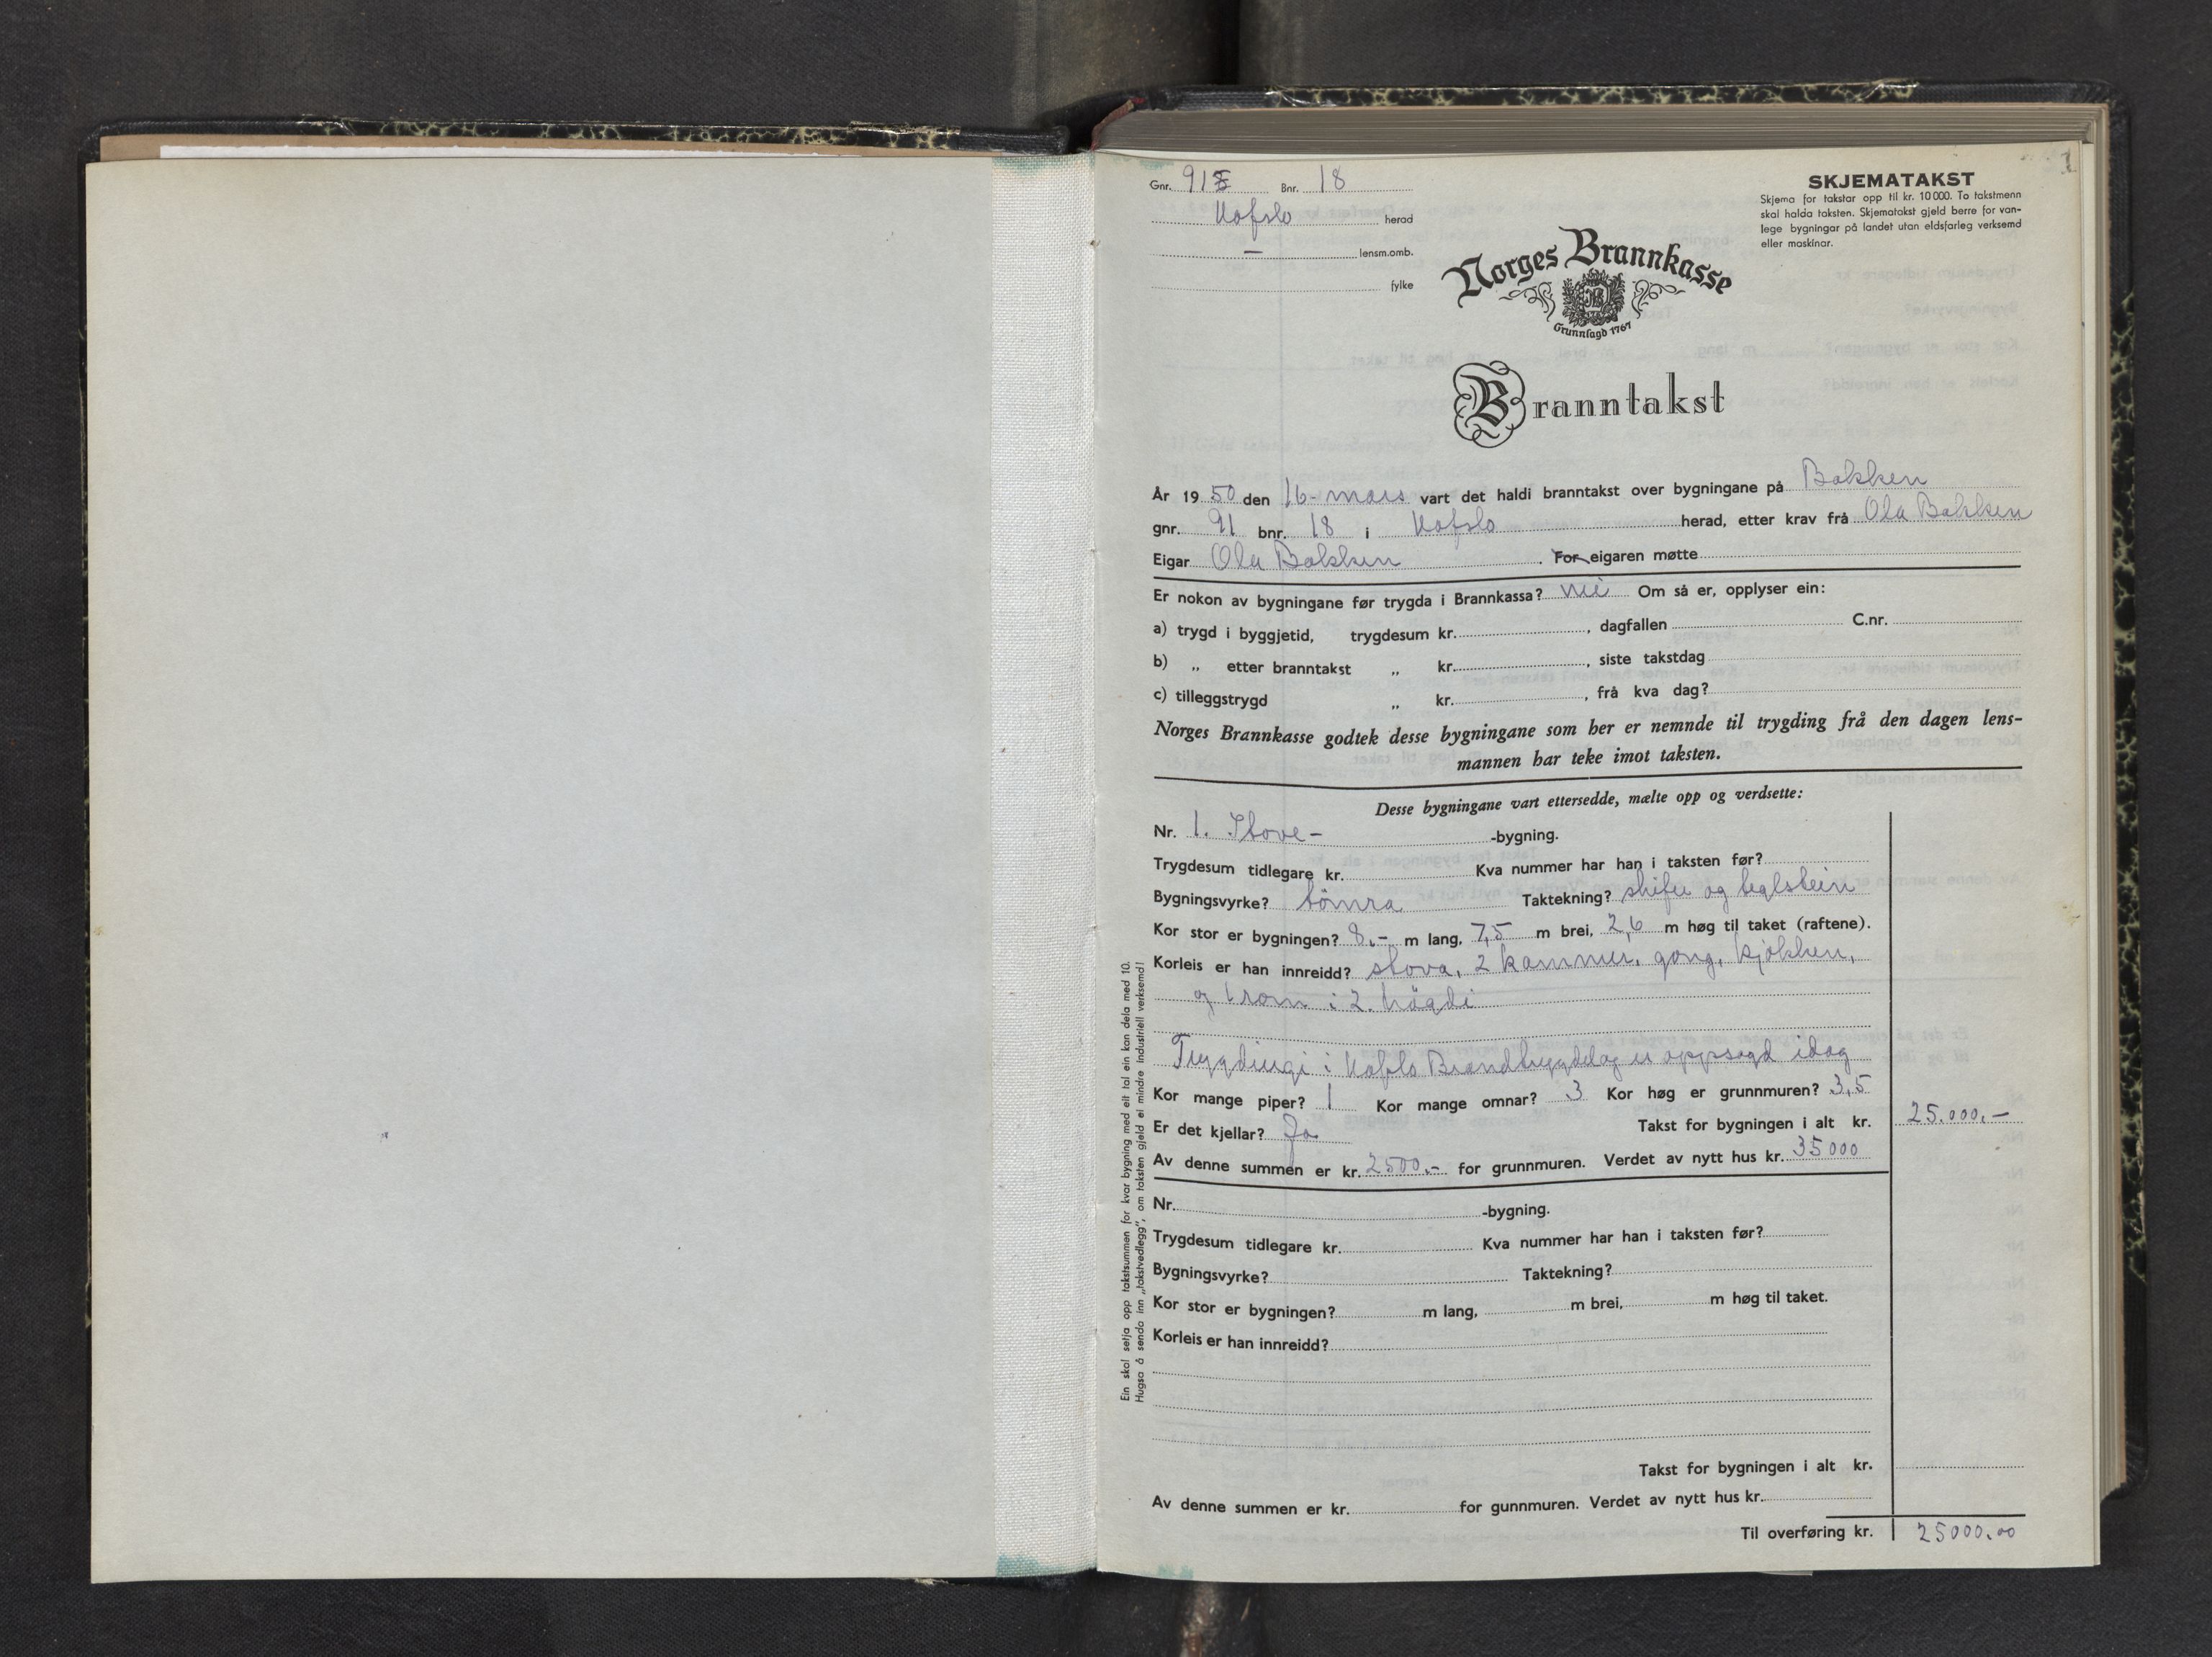 1
Gnr. 91 Bnr. 18
Hafslo herad
— lensm.omb.
fylke
SKJEMATAKST
Skjema for takstar opp til kr. 10 000. To takstmenn
skal halda taksten. Skjematakst gjeld berre for van-
lege bygningar på landet utan eldsfarleg verksemd
eller maskinar.
Norges Brannkasse
Grunnlagd 1767
Branntakst
År 1950 den 16- mars vart det haldi branntakst over bygningane på Bakken
gnr. 91 bnr. 18 i Hafslo herad, etter krav frå Ola Bakken
Eigar Ola Bakken . For eigaren møtte
Er nokon av bygningane før trygda i Brannkassa? nei Om så er, opplyser ein:
a) trygd i byggjetid, trygdesum kr. , dagfallen C.nr.
b) „ etter branntakst „ kr. , siste takstdag
c) tilleggstrygd „ kr. , frå kva dag?
Norges Brannkasse godtek desse bygningane som her er nemnde til trygding frå den dagen lens-
mannen har teke imot taksten.
Desse bygningane vart ettersedde, mælte opp og verdsette:
Nr. 1. Stove- -bygning.
Trygdesum tidlegare kr. Kva nummer har han i taksten før?
Bygningsvyrke? tömra Taktekning? skifer og teglstein
Kor stor er bygningen? 8.- m lang, 7,5 m brei, 2,6 m høg til taket (raftene).
Korleis er han innreidd? stova, 2 kammer, gang, kjøkken,
og 1 rom i 2. högdi
Trygdingi i Hafslo Brandtrygdelag er oppsagd idag
Kor mange piper? 1 Kor mange omnar? 3 Kor høg er grunnmuren? 3,5
Er det kjellar? Ja Takst for bygningen i alt kr. 25.000.-
Av denne summen er kr. 2500.- for grunnmuren. Verdet av nytt hus kr. 35000
Nr. -bygning.
Trygdesum tidlegare kr. Kva nummer har han i taksten før?
Bygningsvyrke? Taktekning?
Kor stor er bygningen? m lang, m brei, m høg til taket.
Korleis er han innreidd?
Takst for bygningen i alt kr.
Av denne summen er kr. for gunnmuren. Verdet av nytt hus kr.
Til overføring kr. 25000.00
Ein skal setja opp takstsummen for kvar bygning med eit tal ein kan dela med 10.
Hugsa å senda inn „takstvedlegg", om taksten gjeld ei mindre industriell verksemd!